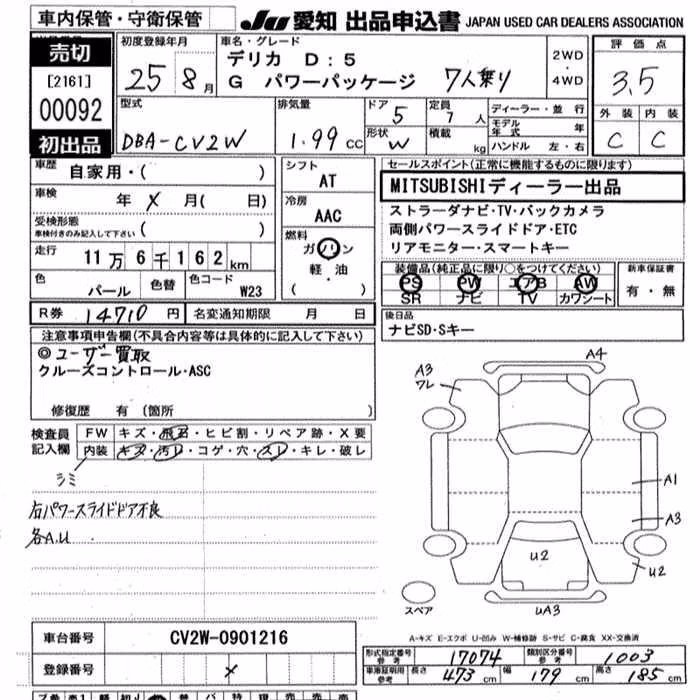 車内保管・守衛保管 JU 愛知 出品申込書 JAPAN USED CAR DEALERS ASSOCIATION
売切
[2161]
00092
初出品
初度登録年月
25 8月
車名・グレード
デリカ D:5
G パワーパッケージ 7人乗り
2WD
・
4WD
評価点
3.5
外装 内装
C C
型式
DBA-CV2W
排気量
1.99 cc
ドア 5
形状 W
定員 7 人
積載 kg
ディーラー・並行
モデル年式 年
ハンドル 左・右
車歴 自家用・( )
車検 年 × 月( 日)
受検形態
車検付きのみ記入して下さい ( )
走行 11万6千162km
色 パール 色替 色コード W23
シフト AT
冷房 AAC
燃料
ガソリン
・
軽・油
( )
セールスポイント(正常に機能するものに限ります)
MITSUBISHIディーラー出品
ストラーダナビ・TV・バックカメラ
両側パワースライドドア・ETC
リアモニター・スマートキー
装備品(純正品に限り○をつけてください)
PS PW エアB AW
SR ナビ TV カワシート
新車保証書
有・無
R券 14710円 名変通知期限 月 日
後日品
ナビSD・Sキー
注意事項申告欄(不具合内容等は具体的に記入して下さい)
◎ユーザー買取
クルーズコントロール・ASC
修復歴 有 (箇所 )
検査員記入欄
FW キズ・飛石・ヒビ割・リペア跡・X要
内装 キズ・汚レ・コゲ・穴・スレ・キレ・破レ
シミ
右パワースライドドア不良
各A.U
A4
A3
ワレ
A1
A3
U2
U2
UA3
スペア
A-キズ E-エクボ U-凹み W-補修跡 S-サビ C-腐食 XX-交換済
車台番号 CV2W-0901216
登録番号 ×
形式指定番号 参考 17074 類別区分番号 参考 1003
車庫証明用 参考 長さ 473 cm 幅 179 cm 高さ 185 cm